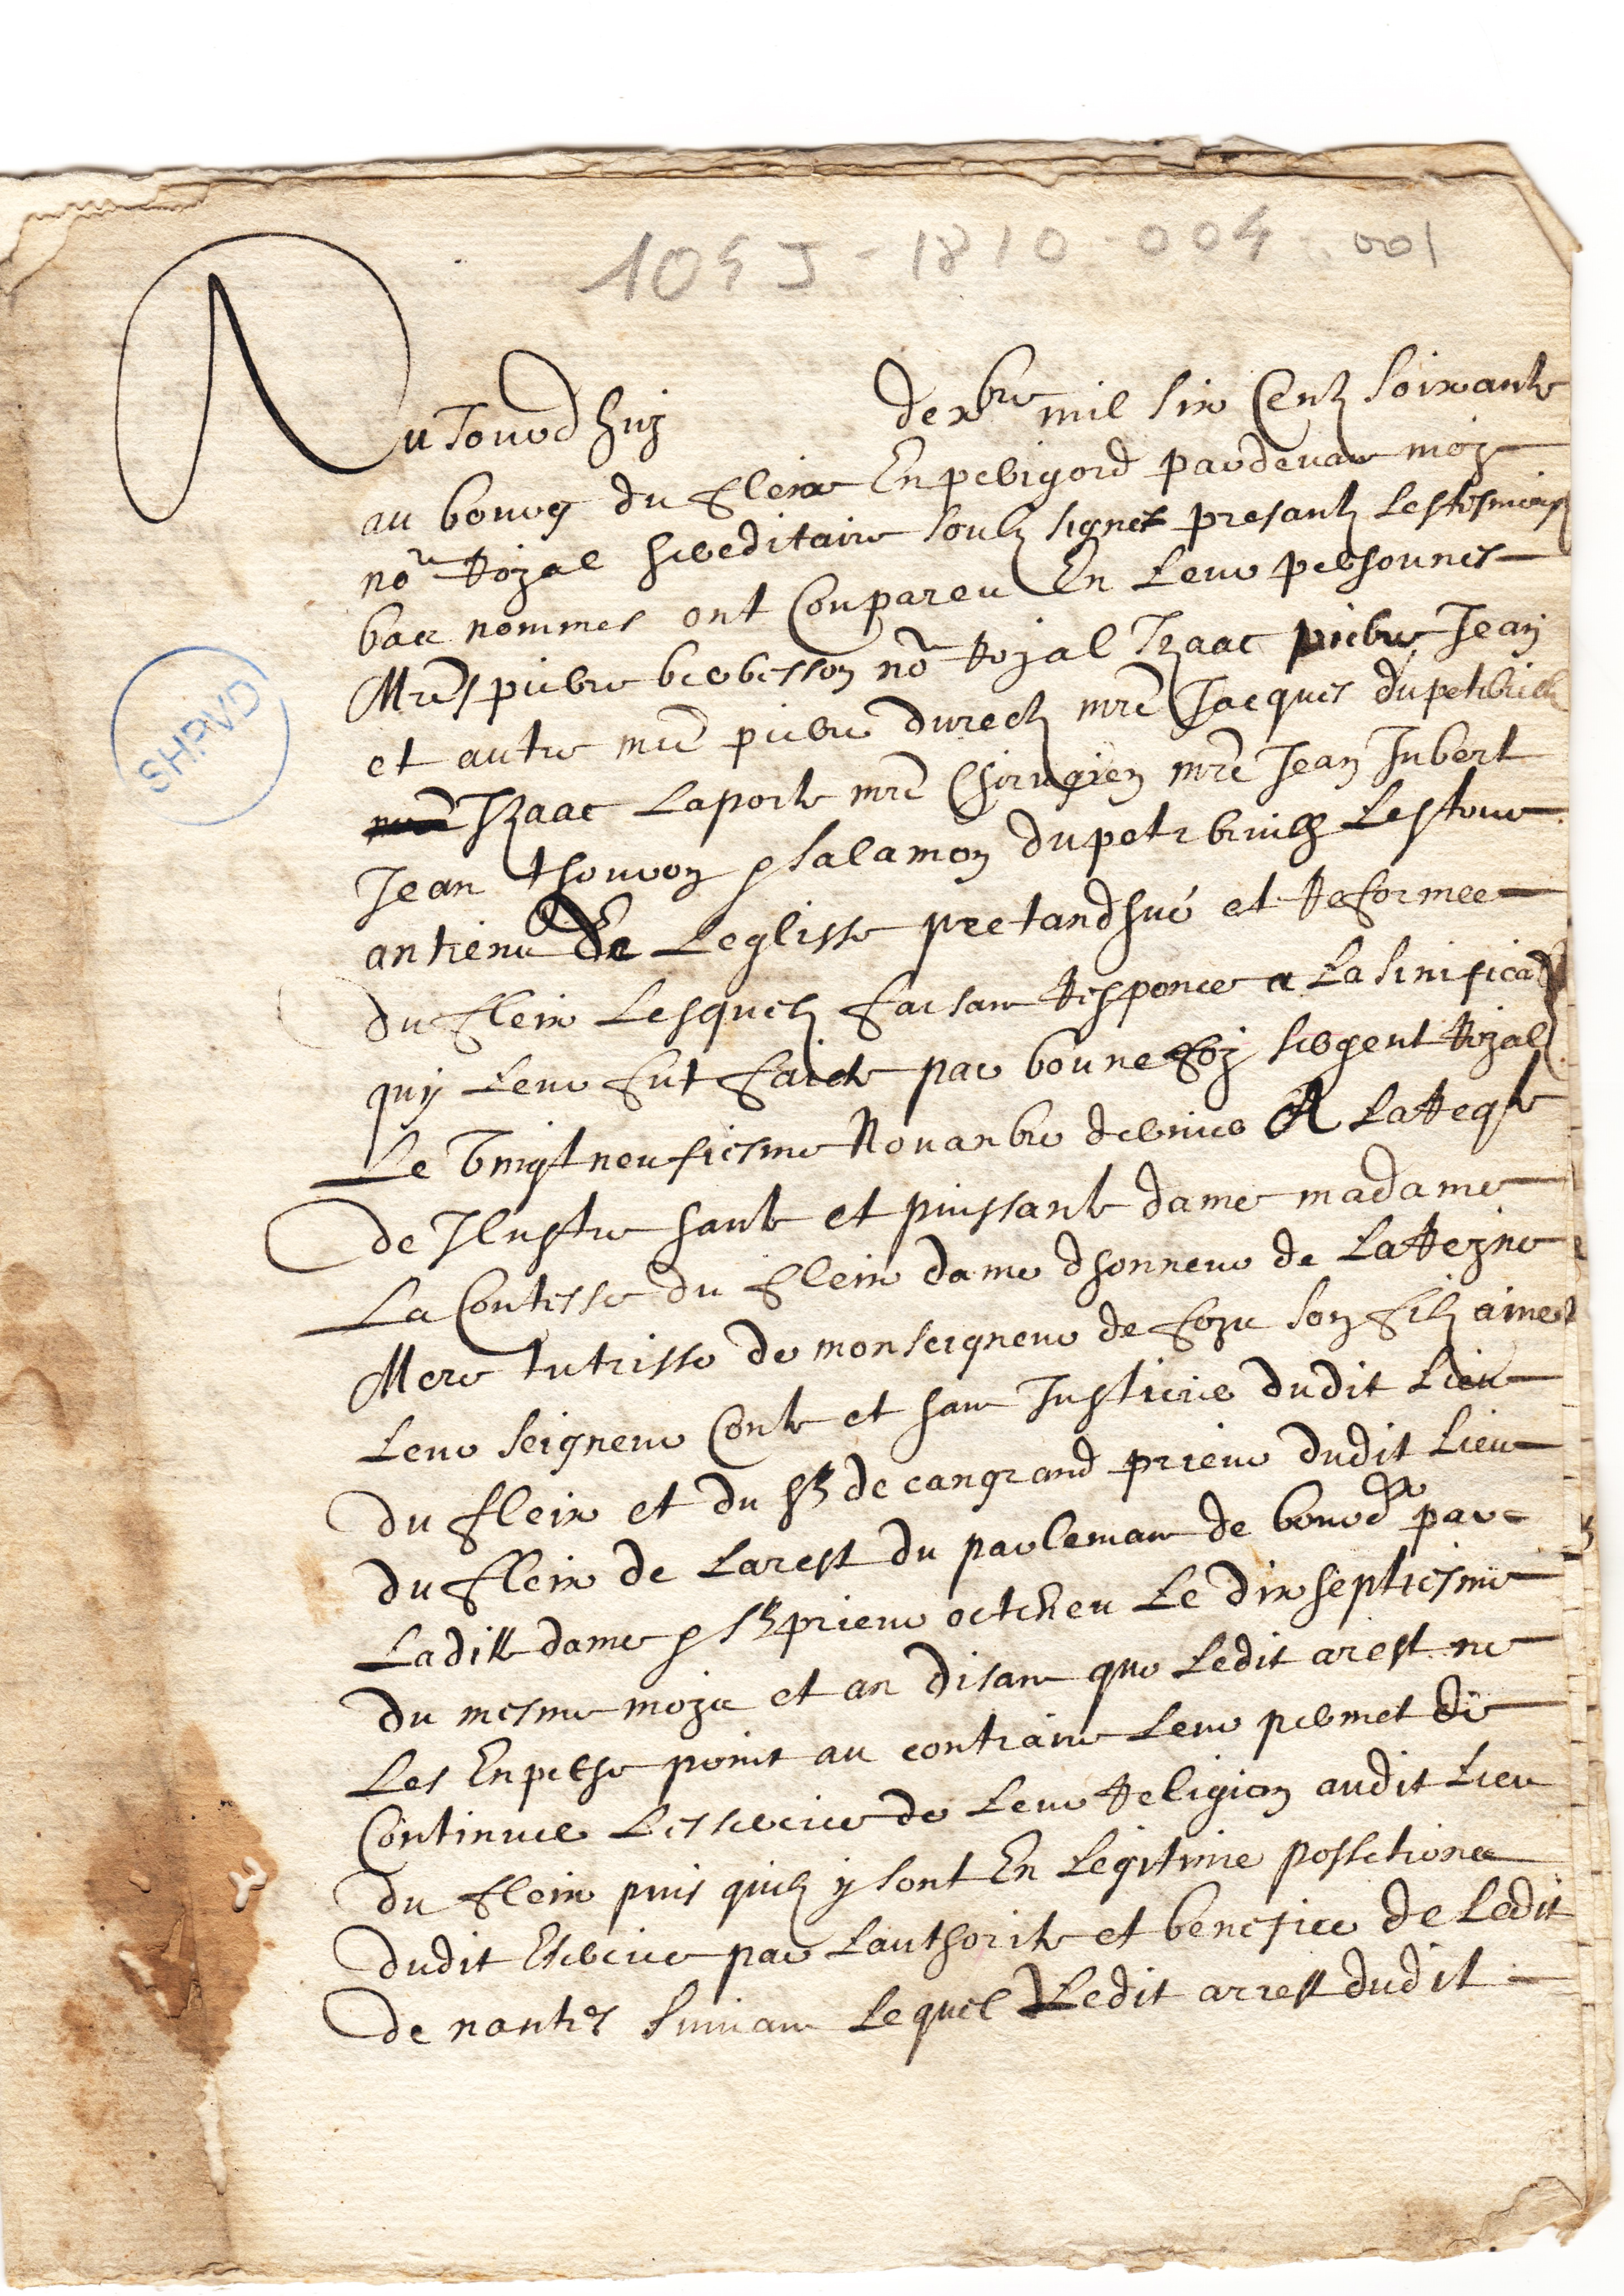 105J - 1810 - 004 - 001
Aujourdhuy dexbre mil six Centz soixante
au bourg du fleix En perigord pardevant moy
nore Royal hereditaire soubz signes presantz les tesmoings
bas nommes ont Conpareu En leur personnes
Mres pierre berbesson nore Royal Izaac pierre Jean
et autre mre pierre durech mre Jacques dupetibruilh
Izaac Laporte mre Chirugien mre Jean Jubert
Jean thouron & salamon dupetibruilh Les tous
antiens de Leglisse pretandhue et Reformee
du fleix Lesquelz faisant Responce a La sinifica
quy leur fut faicte par bounefoy sergent Royal
Le vingt neufiesme Novanbre dernier A La Reqte
de Ilustre haute et puissante dame madame
La Contesse du fleix dame dhonneur de La Reyne
Mere tutrisse de monseigneur de foix son filz aine
leur seigneur Conte et haut Justicier dudit Lieu
du fleix et du Sr de cangrand prieur dudit Lieu
du fleix de Larest du parlemant de bourdx par
Ladite dame & Sr prieur octeneu Le dix septiesme
du mesme moys et an disant que Ledit arest ne
Les Enpeche point au contraire leur permet de
Continuer Lessercice de leur Religion audit Lieu
du fleix puis quilz y sont En Legitime possetion
dudit Exercice par Lauthorite et benefice de Ledit
de nantes suivant Lequel Ledit arrest dudit
SHPVD